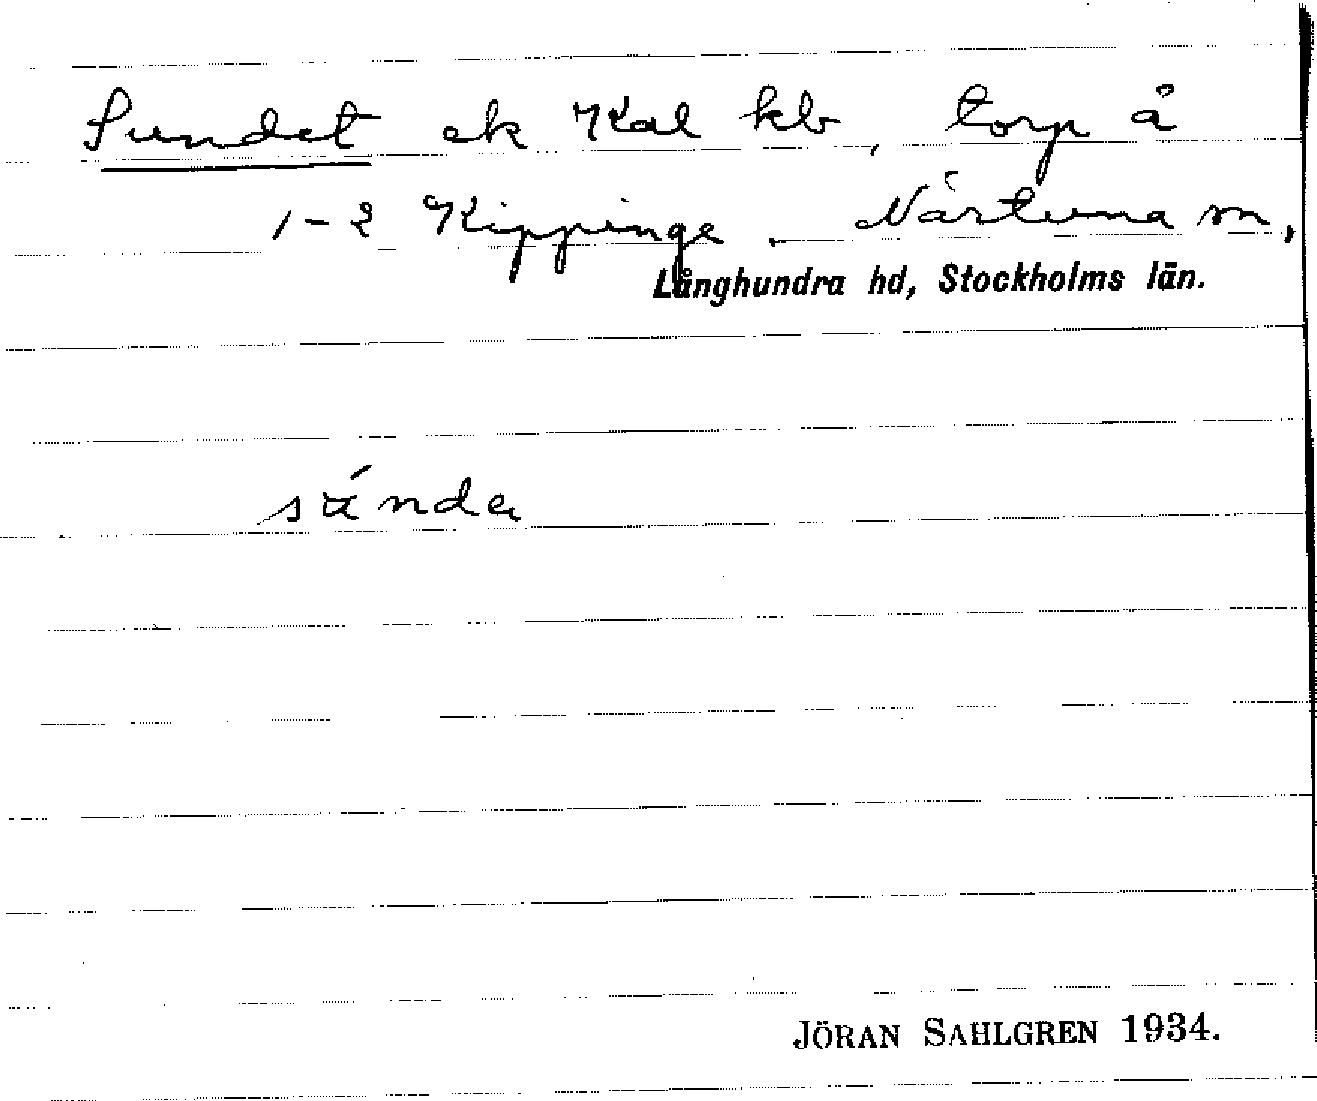 Sundet ek Kal kb, torp å
1-2 Kippinge. Närtuna sn,
Långhundra hd, Stockholms län.
súnda
JÖRAN SAHLGREN 1934.